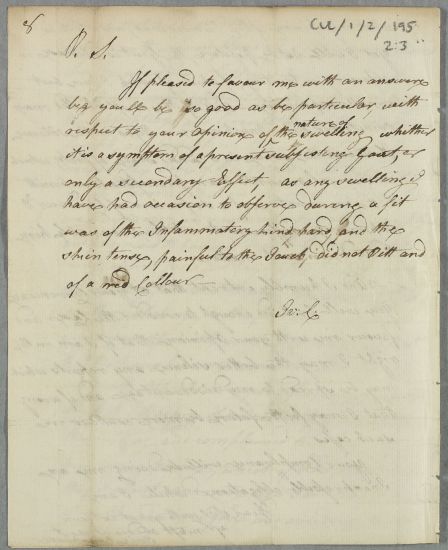 8
CUL/1/2/195
2:3
P. S.
If pleased to favour me with an answere
beg you'll be so good as be particular, with
respect to your opinion of the nature of swelling whither
it is a symptom of a present subsisting Gout, or
only a secondary Effect, as any swelling I
have had occasion to observe during a fit
was of the Inflammatory kind hard, and the
skin tense, painful to the Touch, did not Pitt and
of a red Collour